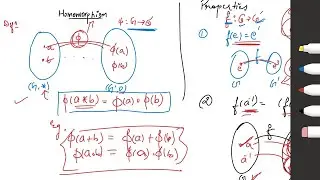 Homomorphism
Defn
ϕ : G → G'
ϕ
a
b
ϕ(a)
ϕ(b)
(G, *)
(G', o)
ϕ(a*b) = ϕ(a) o ϕ(b)
Eg:
ϕ(a+b) = ϕ(a) + ϕ(b)
ϕ(a·b) = ϕ(a)·ϕ(b)
Properties
f : G → G'
① f(e) = e'
e
e'
G
② f(a⁻¹) = (f
f
a
a⁻¹